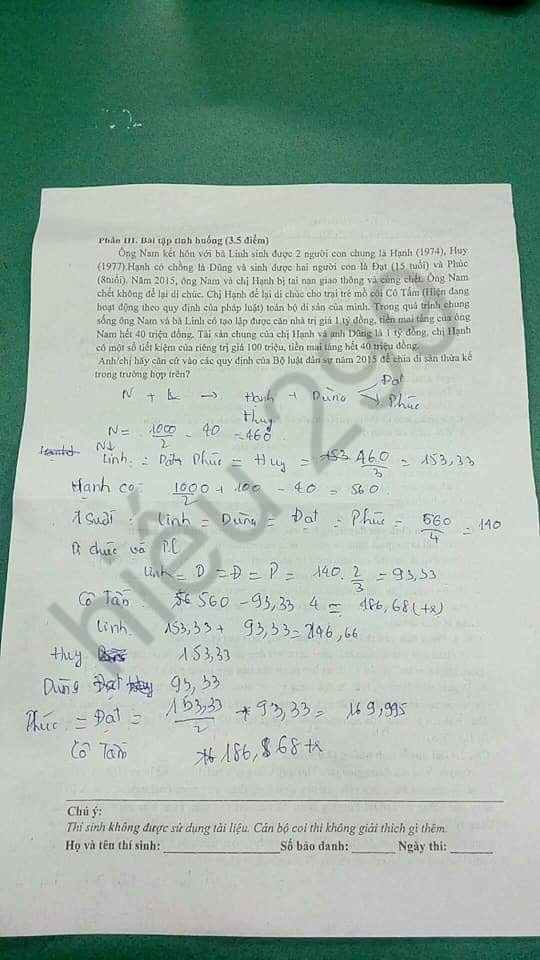 Phần III. Bài tập tình huống (3.5 điểm)
Ông Nam kết hôn với bà Linh sinh được 2 người con chung là Hạnh (1974), Huy
(1977).Hạnh có chồng là Dũng và sinh được hai người con là Đạt (15 tuổi) và Phúc
(8tuổi). Năm 2015, ông Nam và chị Hạnh bị tai nạn giao thông và cùng chết. Ông Nam
chết không để lại di chúc. Chị Hạnh để lại di chúc cho trại trẻ mồ côi Cô Tấm (Hiện đang
hoạt động theo quy định của pháp luật) toàn bộ di sản của mình. Trong quá trình chung
sống ông Nam và bà Linh có tạo lập được căn nhà trị giá 1 tỷ đồng, tiền mai táng của ông
Nam hết 40 triệu đồng. Tài sản chung của chị Hạnh và anh Dũng là 1 tỷ đồng, chị Hạnh
có một sổ tiết kiệm của riêng trị giá 100 triệu, tiền mai táng hết 40 triệu đồng.
Anh/chị hãy căn cứ vào các quy định của Bộ luật dân sự năm 2015 để chia di sản thừa kế
trong trường hợp trên?
Đạt
N + L → Hạnh + Dũng
Phúc
Huy
N = 1000/2 - 40 = 460
Linh = Phúc = Huy = 460/3 = 153,33
Hạnh có: 1000/2 + 100 - 40 = 560
1 suất: Linh = Dũng = Đạt = Phúc = 560/4 = 140
Di chúc và PL
Linh = D = Đ = P = 140. 2/3 = 93,33
Cô Tấn: 560 - 93,33 4 = 186,68 (tr)
Linh: 153,33 + 93,33 = 246,66
Huy 153,33
Dũng 93,33
Phúc = Đạt = 153,33/2 + 93,33 = 169,995
Cô Tấn 186,68 tr
hiếu 299
Chú ý:
Thí sinh không được sử dụng tài liệu. Cán bộ coi thi không giải thích gì thêm.
Họ và tên thí sinh: Số báo danh: Ngày thi: